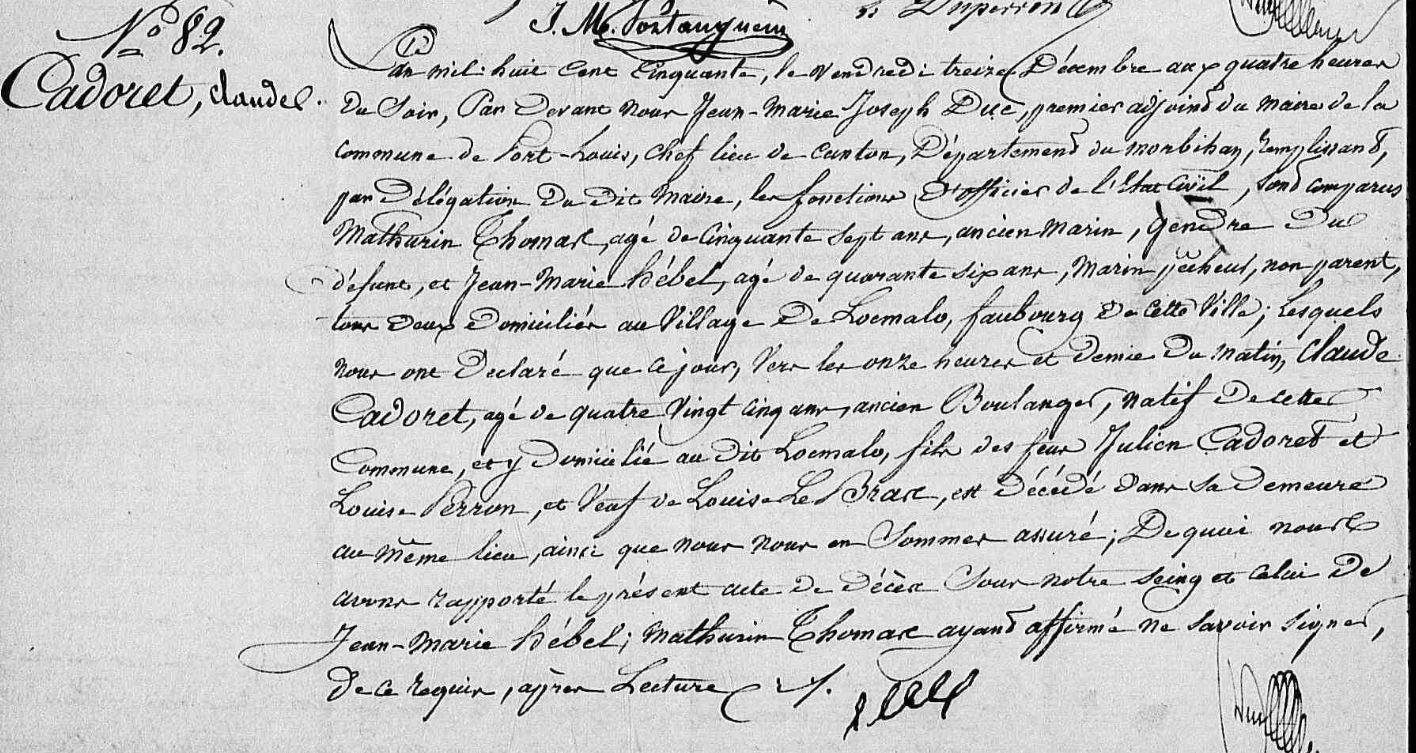 J. M. Portanguen
Duperron
N.º 82.
Cadoret, Claude.
L'an mil-huit cent cinquante, le vendredi treize Décembre aux quatre heures
du Soir, Par devant nous Jean-Marie Joseph Duc, premier adjoint du maire de la
commune de Port-Louis, chef lieu de canton, Département du morbihan, remplissant,
par Délégation du dit Maire, les fonctions d'officier de l'Etat civil, sont comparus
Mathurin Thomas, agé de cinquante sept ans, ancien marin, gendre du
défunt, et Jean-Marie hébel, agé de quarante six ans, Marin pêcheur, non parent,
tous deux domiciliés au Village de Locmalo, faubourg de cette Ville; Lesquels
nous ont Déclaré que ce jour, vers les onze heures et demie du matin, Claude
Cadoret, agé de quatre vingt cinq ans, ancien Boulanger, natif de cette
Commune, et y domicilié au dit Locmalo, fils des feus Julien Cadoret et
Louise Perron, et Veuf de Louise Le Bras, est décédé dans sa demeure
au même lieu, ainsi que nous nous en Sommes assuré; De quoi nous
avons rapporté le présent acte de décès Sous notre seing et celui de
Jean-Marie hébel; Mathurin Thomas ayant affirmé ne savoir signer,
de ce requis, après Lecture ./.